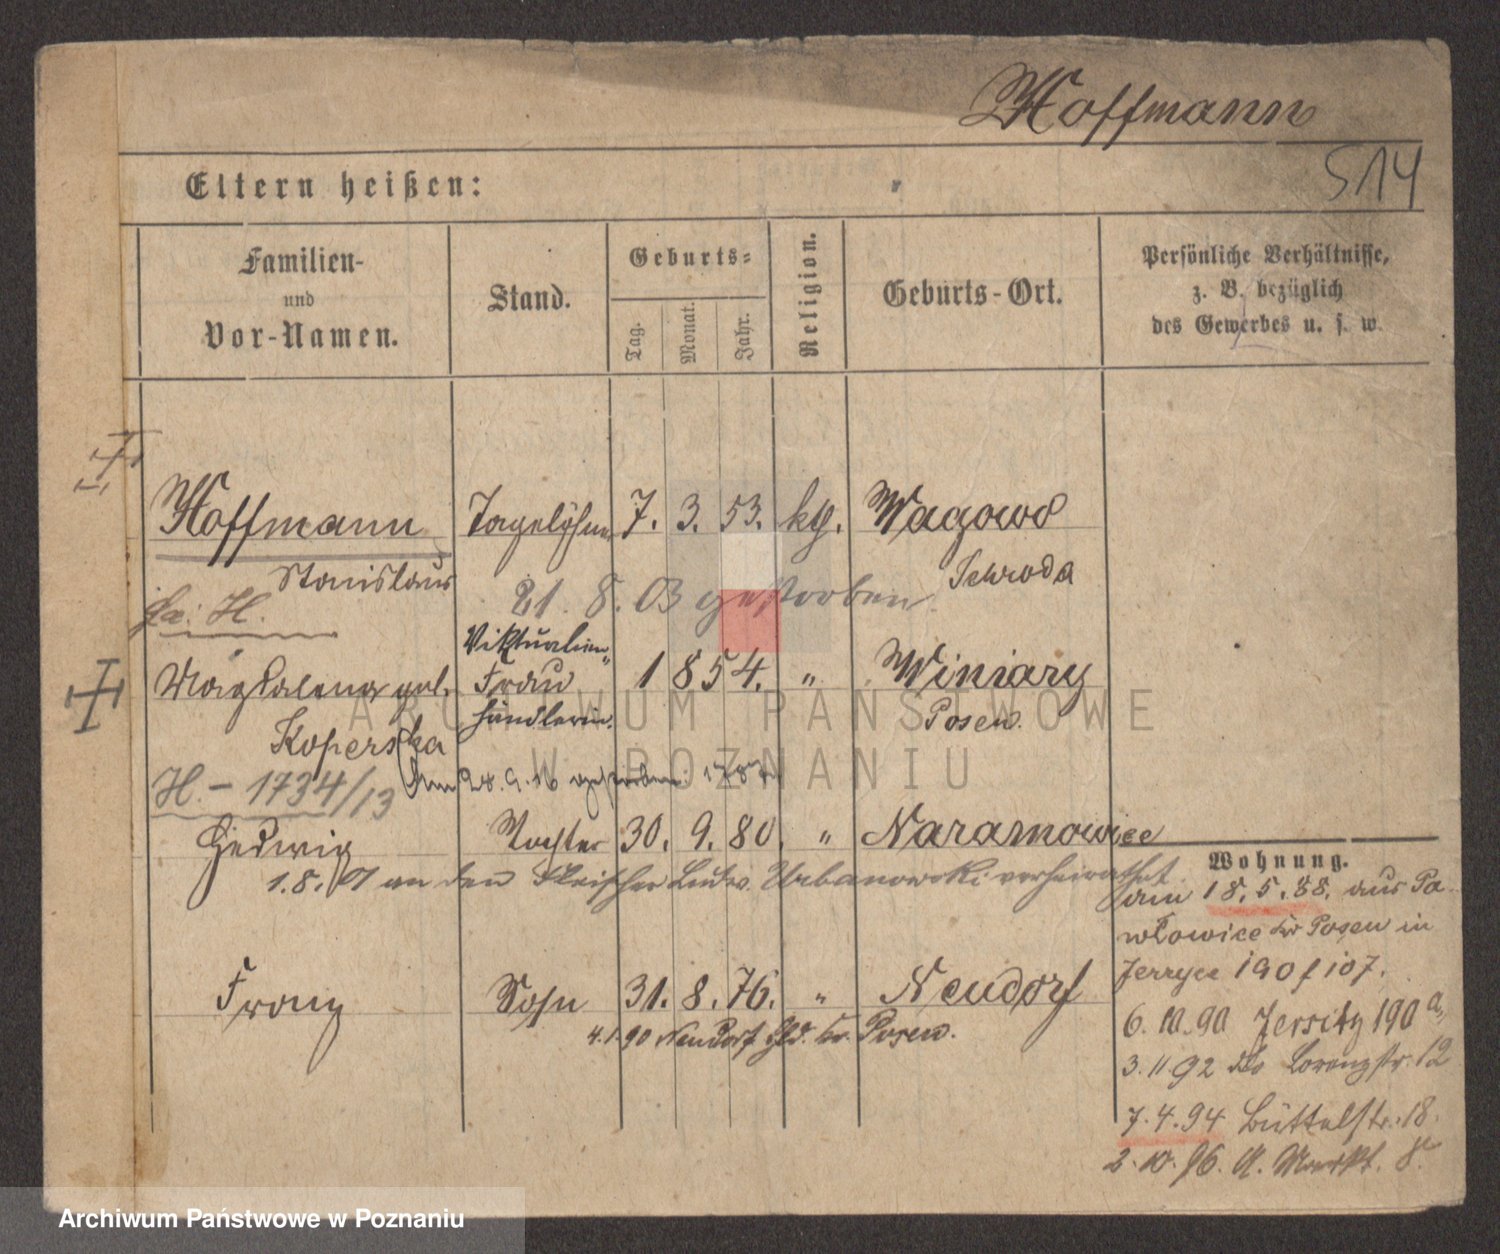 Hoffmann
514
Eltern heißen:
Familien- und Vor-Namen.
Stand.
Geburts-
Tag. Monat. Jahr.
Religion.
Geburts-Ort.
Persönliche Verhältnisse, z. B. bezüglich des Gewerbes u. s. w.
Hoffmann Tagelöhner 7. 3. 53. kth. Wagowo
Stanislaus Schroda
21. 8. 03 gestorben.
Viktualien-
Magdalena geb. Frau 1854. " Winiary
händlerin. Posen.
Koperska
H. - 1734/13 Am 28.9.16 gestorben:
Hedwig Tochter 30. 9. 80. " Naramowice
1.8. an den Fleischer Ludw. Urbanowski verheirathet
Franz Sohn 31. 8. 76. " Neudorf
4.1.90 Neudorf Kr. Posen.
Wohnung.
am 18.5.88. aus Pa-
włowice Kr Posen in
Jerzyce 190 f 107.
6.10.90 Jersitz 190a,
3.11.92 do Lorenzstr. 12
7.4.94 Büttelstr. 18.
2.10.96. A. Markt. 8.
ARCHIWUM PAŃSTWOWE
W POZNANIU
Archiwum Państwowe w Poznaniu